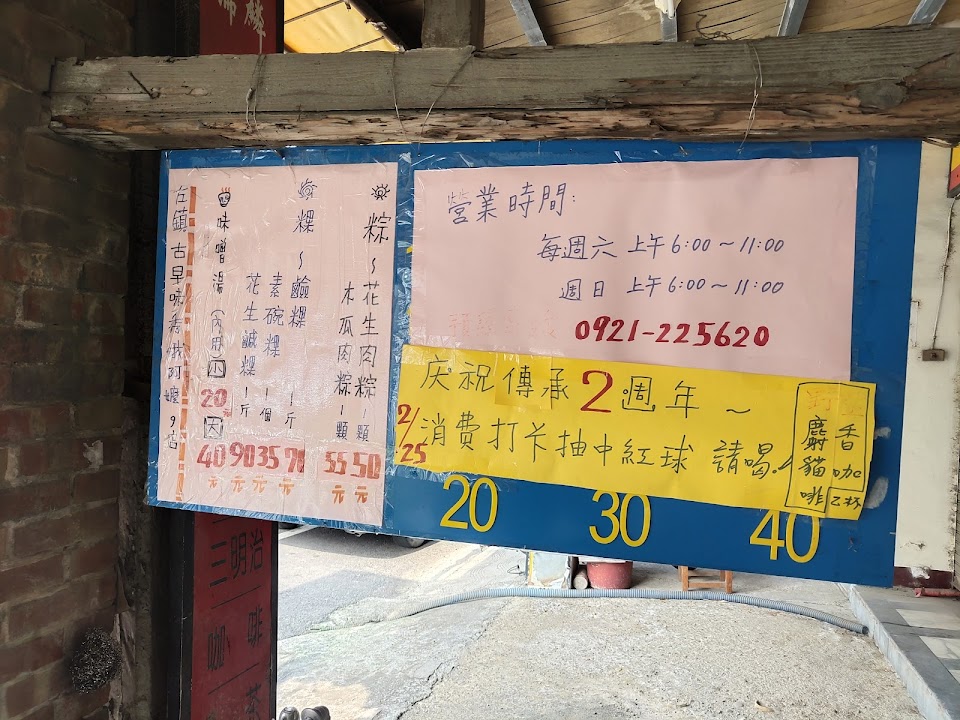 營業時間:
每週六 上午6:00~11:00
週日 上午6:00~11:00
0921-225620
庆祝傳承2週年~
2/25
消費打卡抽中紅球 請喝
麝香
貓咖
啡乙杯
20 30 40
粽~花生肉粽-1顆 50元
木瓜肉粽-1顆 55元
粿~鹼粿-1斤 70元
素碗粿-1個 35元
花生鹹粿-1斤 90元
味噌湯(內用)小20 大40元
左鎮古早味
三明治
咖啡
茶